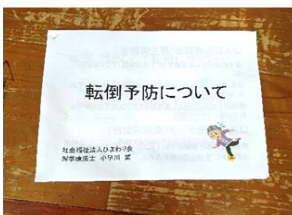 転倒予防について
社会福祉法人ひまわり会
理学療法士 小早川